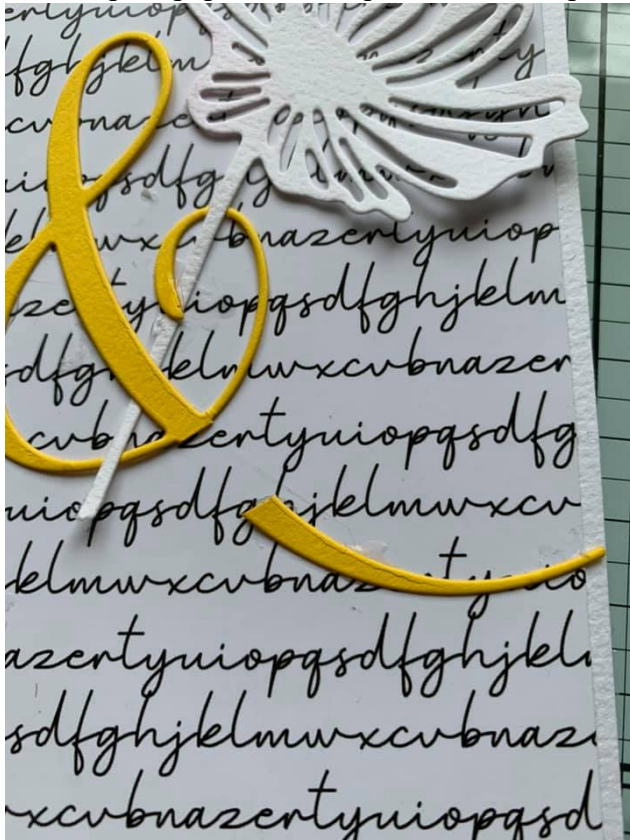 ertyuiop
fghjklm ty
cvbnaze
ui qsdfg
&
kl wx bnazertyuiop
ze ty uiopqsdfghjklm
sdfg klmwxcvbnazer
cvb azertyuiopqsdfg
uiopqsdfghjklmwxcv
klmwxcvbnaz tyuio
azertyuiopqsdfghjkl
sdfghjklmwxcvbnaz
xcvbnazertyuiopqsd